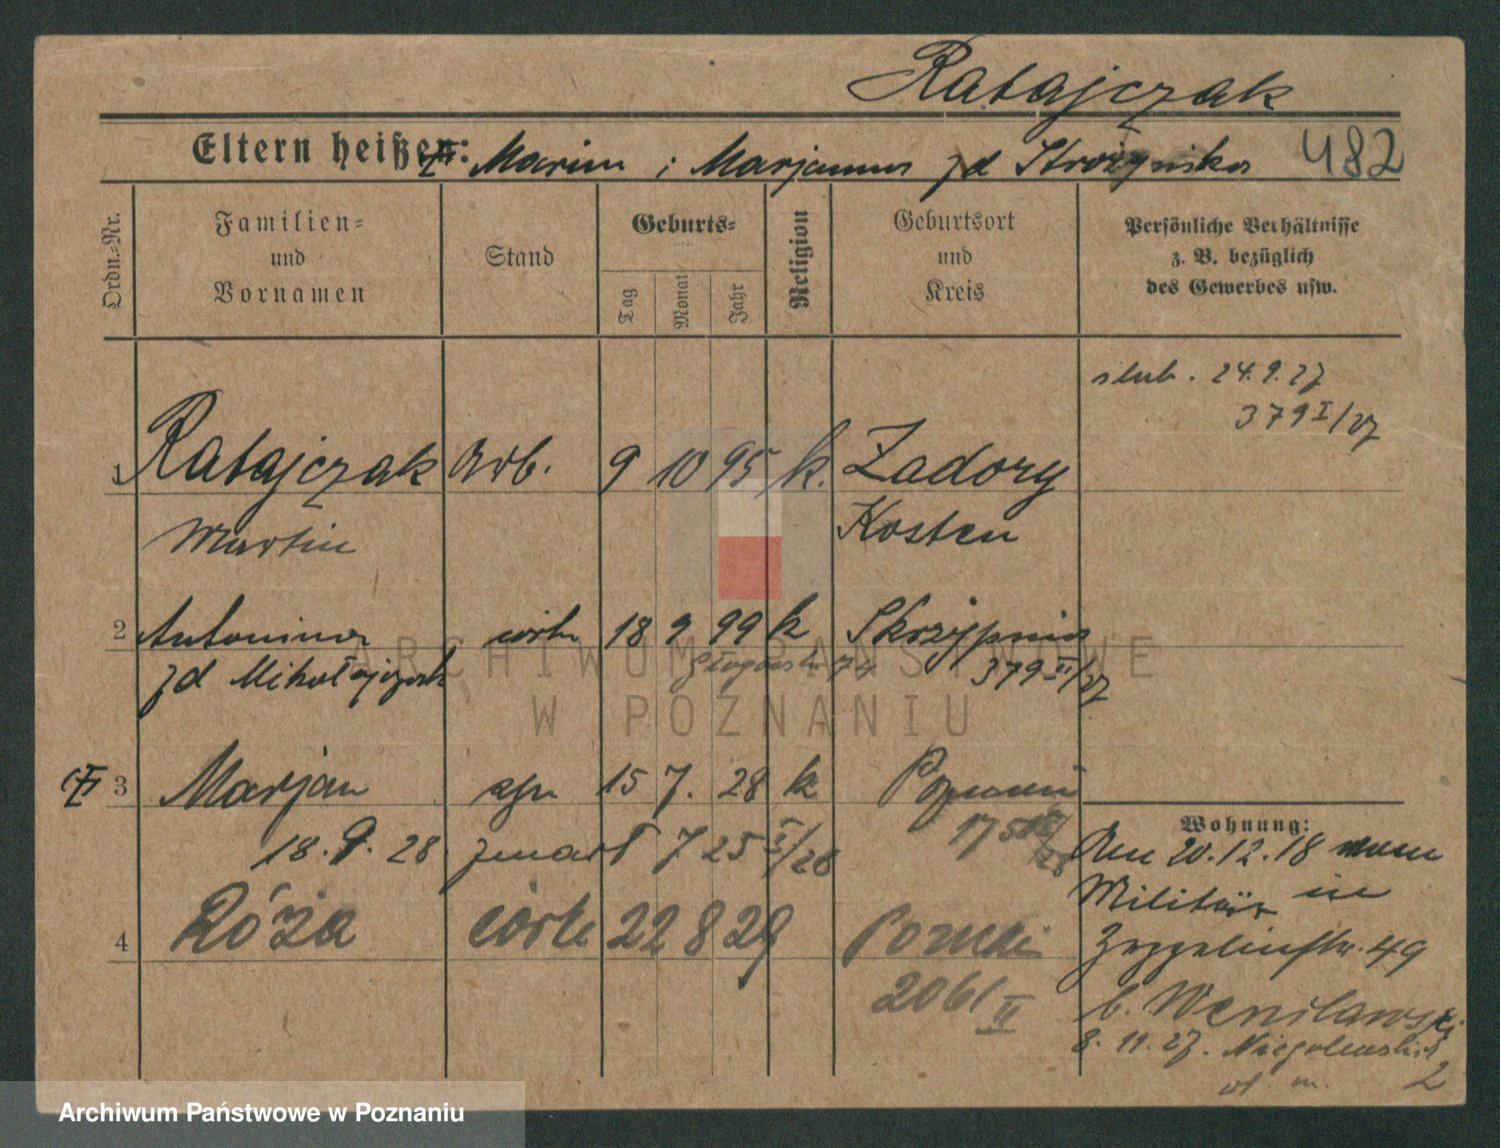 Ratajczak
Eltern heißen: Marcin i Marjanna zd Strożyńska 482
Ordn.-Nr.
Familien-
und
Vornamen
Stand
Geburts-
Tag
Monat
Jahr
Religion
Geburtsort
und
Kreis
Persönliche Verhältnisse
z. B. bezüglich
des Gewerbes usw.
ślub. 24.9.27
379 I/27
1 Ratajczak Arb. 9 10 95 k. Zadory
Martin Kosten
2 Antonina 18 9 99 k
zd Mikołajczak 74 379 II/27
3 Marjan syn 15 7. 28 k Poznań
18. 9. 28 zmarł 725 I/28
4 Róża córka 22 8 29 Poznań
2061 II
Wohnung:
Am 20.12.18 vom
Militär in
Zeppelinstr. 49
b.
8. 11. 27.
2
ARCHIWUM PAŃSTWOWE
W POZNANIU
Archiwum Państwowe w Poznaniu